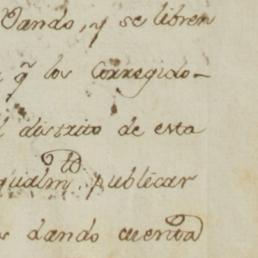 Vando, y se libren
q.e los Corregido-
distrito de esta
publicar
dando cuenta